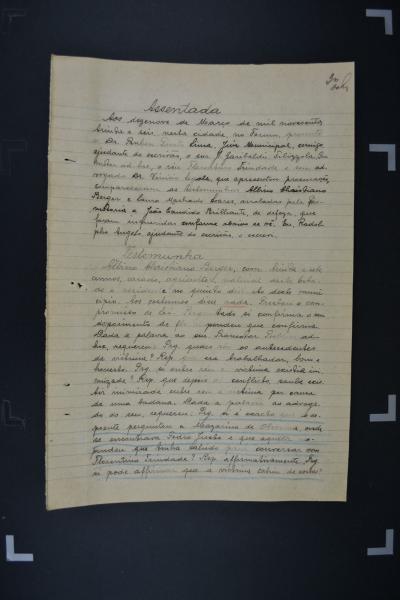 Assentada
Aos dezenove de Março de mil novecentos
trinta e seis, nesta cidade, no Forum, presente
o Dr. Ruben Lima, Juiz Municipal, comigo
ajudante do escrivão, o snr. Garibaldi
ad-hoc, o réu Trindade e seu ad-
vogado Dr. que apresentou procuração,
compareceram as testemunhas Albino Christiano
Berger e Lauro Machado Soares, arroladas pela
e João Candido Brilhante, de defeza, que
foram inqueridas conforme abaixo se vê. Eu, Rodol
pho Angelo, ajudante do escrivão, o escrevi.
Testemunha
Albino Christiano Berger, com trinta e sete
annos, casado, agricultor, natural deste Esta-
do e residente no quinto districto deste muni
cipio. Aos costumes disse nada. Prestou o com-
promisso da lei. Perguntado si confirma o seu
depoimento de respondeu que confirma.
Dada a palavra ao snr. Promotor ad-
hoc, requereu: Prg. quaes os antecedentes
da victima? Resp. que era trabalhador, bom e
honesto. Prg. si entre réu e victima existia ini
mizade? Resp. que depois do conflicto, soube exis
tir inimizade entre réu e victima por causa
de uma Dada a palavra ao advoga-
do do réu, requereu: Prg. si é exacto que
perguntou a Mazarino de Oliveira, onde
se encontrava Pedro e que aquelle
que tinha sahido para conversar com
Florentino Trindade? Resp. affirmativamente. Prg.
si pode affirmar que a victima cahiu de costas?